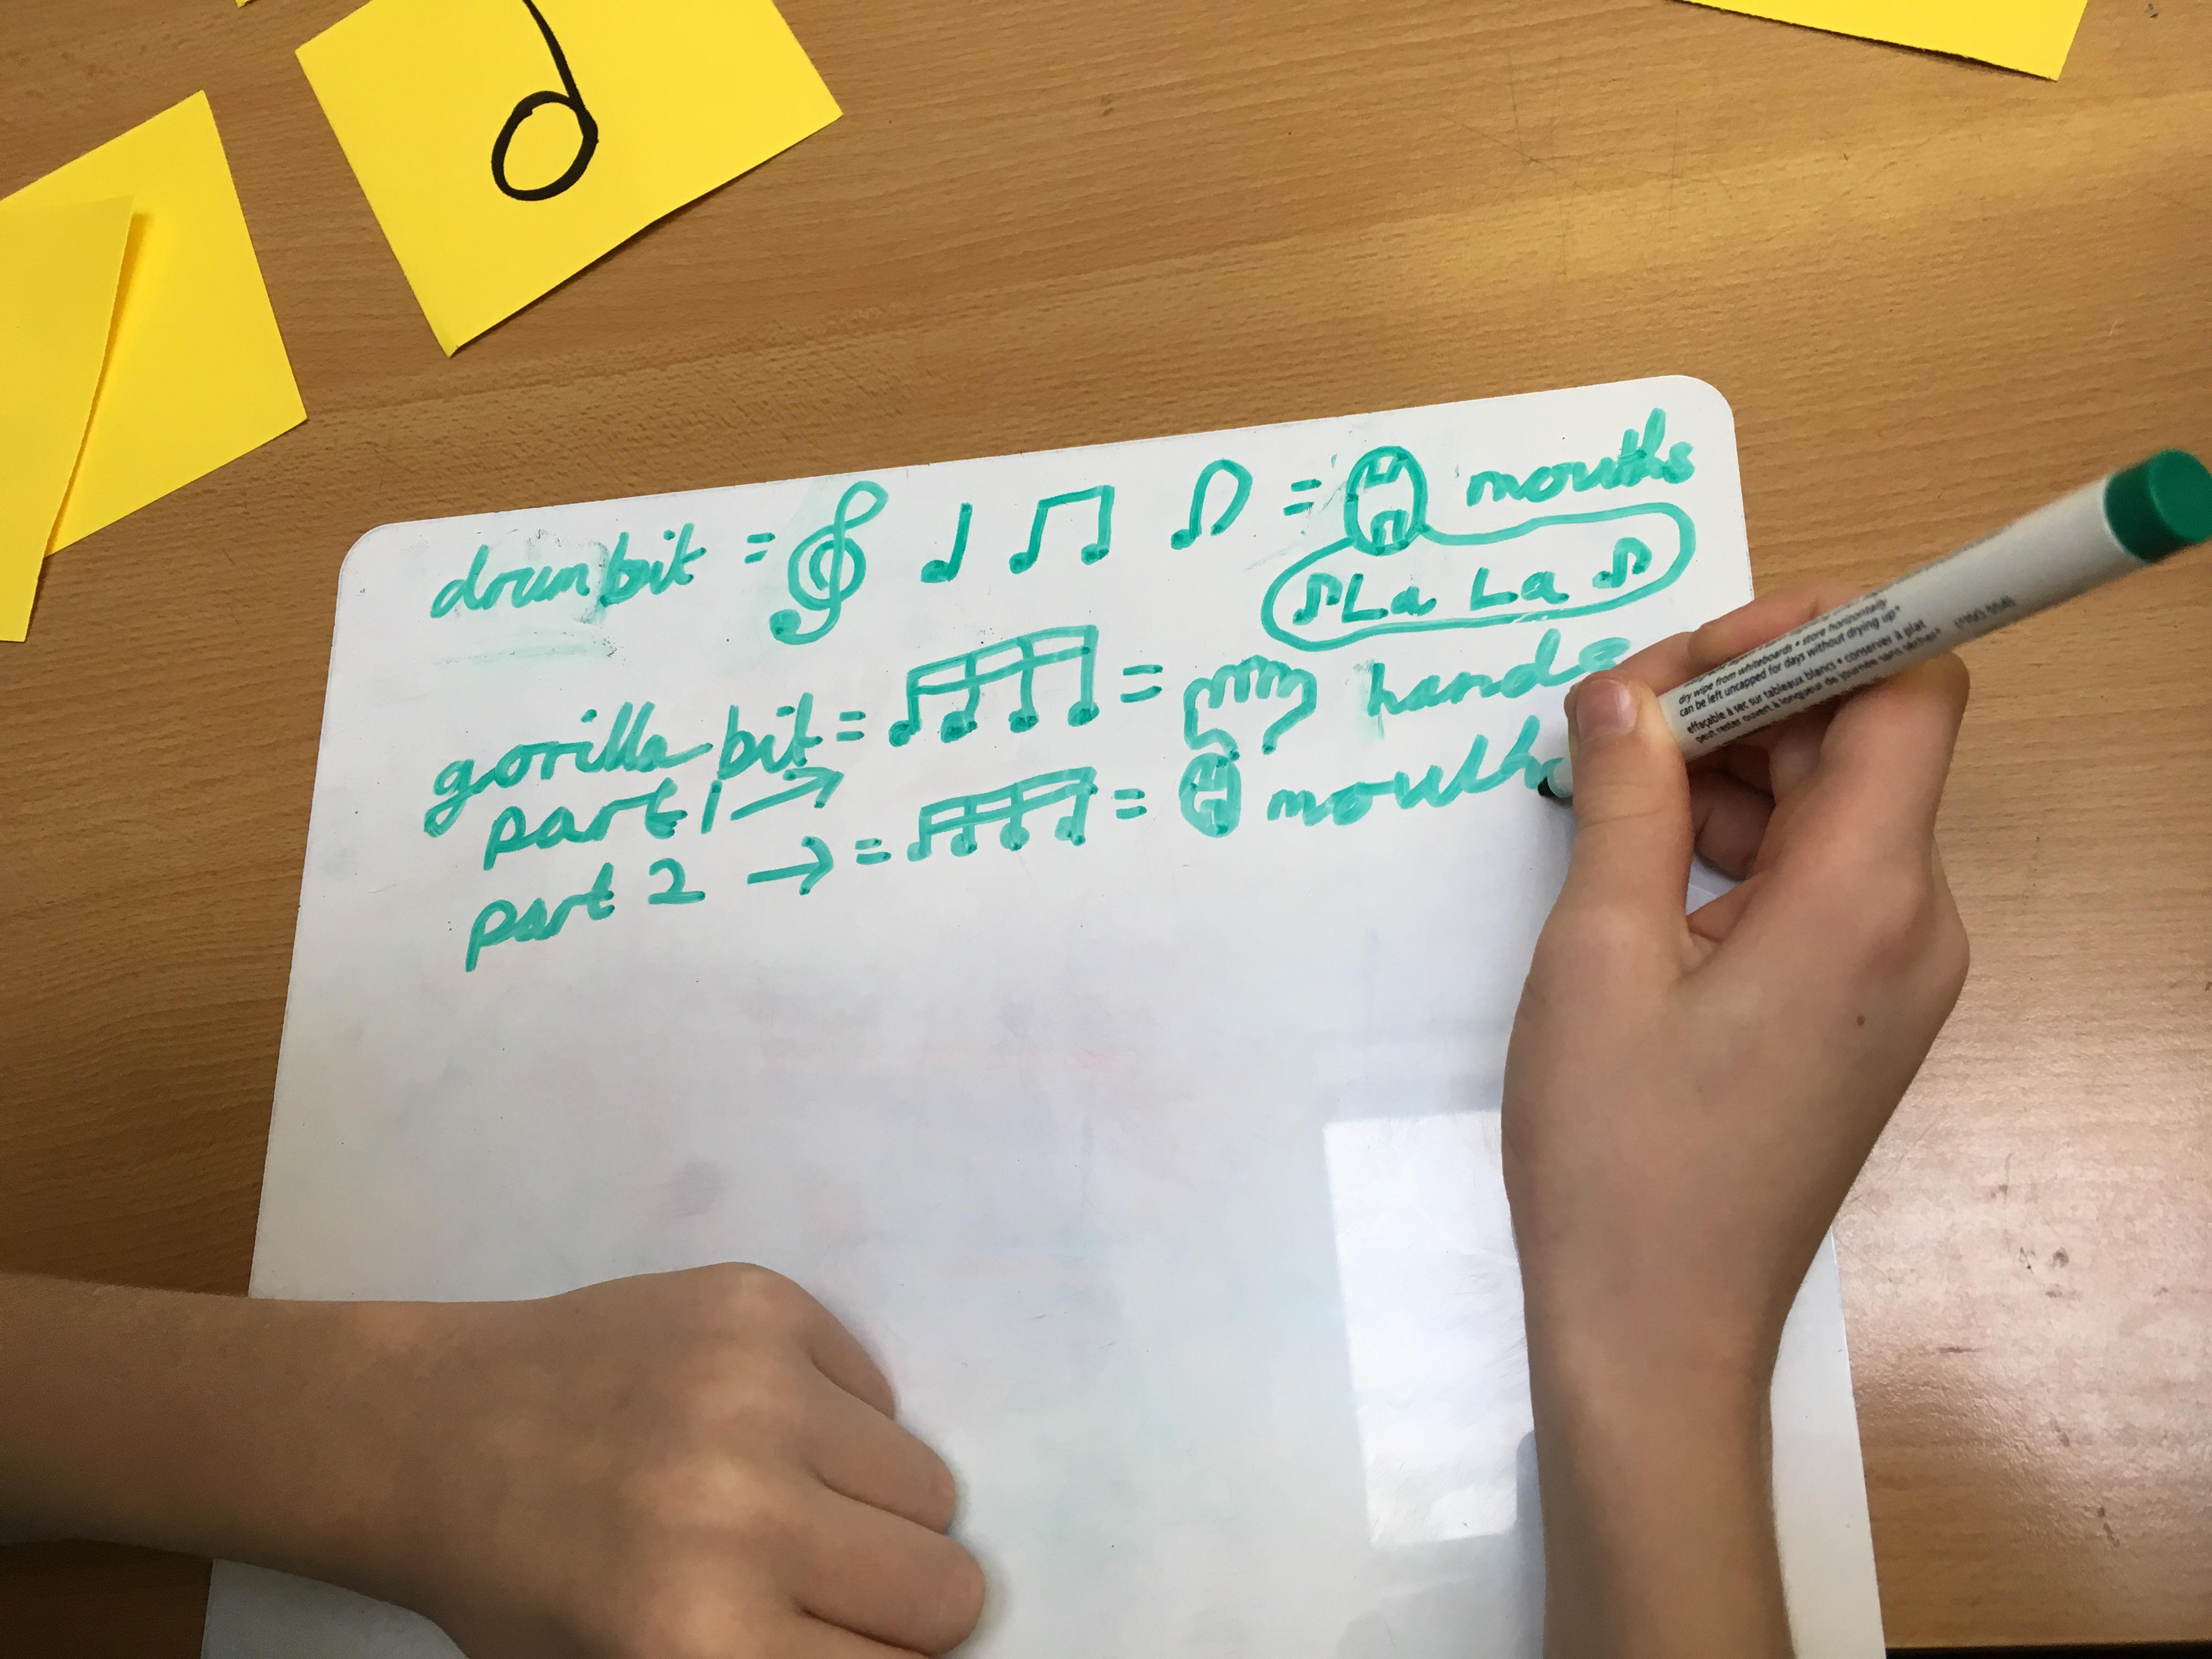 drum bit = = mouths
♪ La La ♫
gorilla bit = = hands
part 1 →
part 2 → = = mouth
dry wipe from whiteboards • store horizontally
can be left uncapped for days without drying up*
effaçable à sec sur tableaux blancs • conserver à plat
peut rester ouvert à longueur de journée sans sécher*